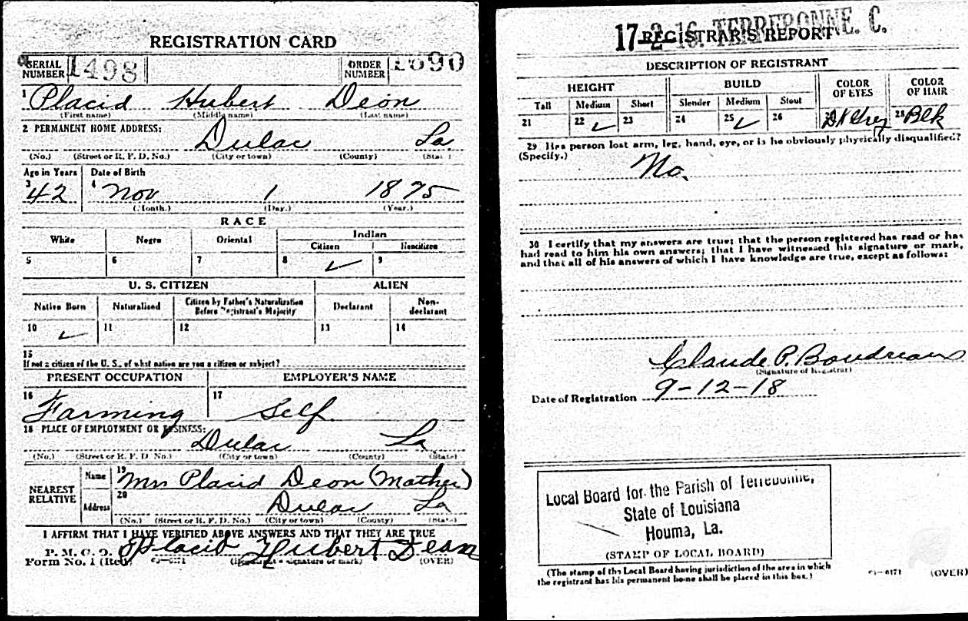 REGISTRATION CARD
SERIAL NUMBER 1498 ORDER NUMBER 1690
1 Placid Hubert Deon
(First name) (Middle name) (Last name)
2 PERMANENT HOME ADDRESS:
Dulac La
(No.) (Street or R. F. D. No.) (City or town) (County) (State)
Age in Years Date of Birth
3 42 4 Nov 1 1875
(Month.) (Day.) (Year.)
RACE
White Negro Oriental Indian
Citizen Noncitizen
5 6 7 8 ✓ 9
U. S. CITIZEN ALIEN
Native Born Naturalized Citizen by Father's Naturalization Before Registrant's Majority Declarant Non-declarant
10 ✓ 11 12 13 14
15
If not a citizen of the U. S., of what nation are you a citizen or subject?
PRESENT OCCUPATION EMPLOYER'S NAME
16 Farming 17 Self
18 PLACE OF EMPLOYMENT OR BUSINESS:
Dulac La
(No.) (Street or R. F. D. No.) (City or town) (County) (State)
NEAREST RELATIVE Name 19 Mrs Placid Deon (Mother)
Address 20 Dulac La
(No.) (Street or R. F. D. No.) (City or town) (County) (State)
I AFFIRM THAT I HAVE VERIFIED ABOVE ANSWERS AND THAT THEY ARE TRUE
P. M. G. O.
Form No. 1 (Red) Placid Hubert Dean
(Registrant's signature or mark) (OVER)
17-2-16. TERREBONNE. C.
REGISTRAR'S REPORT
DESCRIPTION OF REGISTRANT
HEIGHT BUILD COLOR OF EYES COLOR OF HAIR
Tall Medium Short Slender Medium Stout
21 22 ✓ 23 24 25 ✓ 26 28 Blk
29 Has person lost arm, leg, hand, eye, or is he obviously physically disqualified?
(Specify.) No.
30 I certify that my answers are true; that the person registered has read or has
had read to him his own answers; that I have witnessed his signature or mark,
and that all of his answers of which I have knowledge are true, except as follows:
Claude P. Boudreaux
(Signature of Registrar)
Date of Registration 9-12-18
Local Board for the Parish of Terrebonne,
State of Louisiana
Houma, La.
(STAMP OF LOCAL BOARD)
(The stamp of the Local Board having jurisdiction of the area in which
the registrant has his permanent home shall be placed in this box.) (OVER)